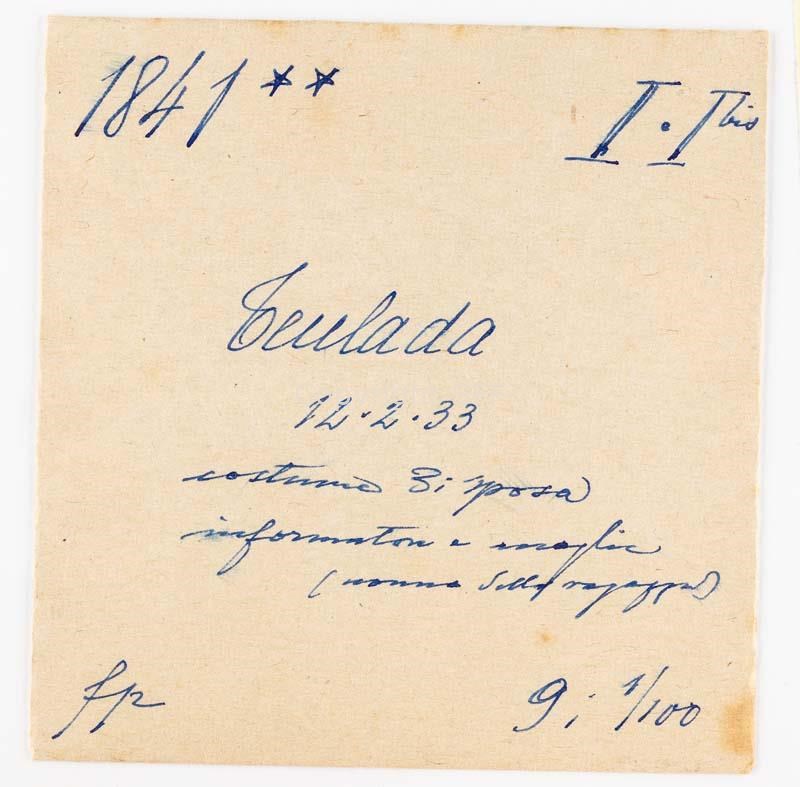 1841 **
I. I bis
Teulada
12.2.33
costume di sposa
informatore e moglie
(nonna della ragazza)
fp
9; 1/100